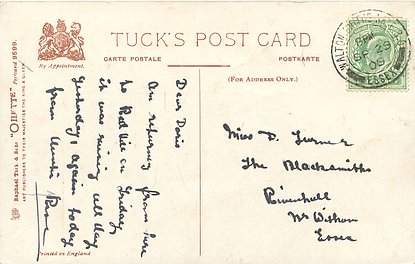 TUCK'S POST CARD
CARTE POSTALE
POSTKARTE
By Appointment.
(FOR ADDRESS ONLY.)
Raphael Tuck & Sons "OILETTE" Postcard 9599.
ART PUBLISHERS TO THEIR MAJESTIES THE KING & QUEEN
Printed in England
WALTON
5
SP 29
09
ESSEX
Dear Doris
Am returning from here
to on Friday,
it was raining all day
Yesterday, again today
from Auntie Rose
Miss D. Turner
The Blacksmiths
Rivenhall
Nr Witham
Essex